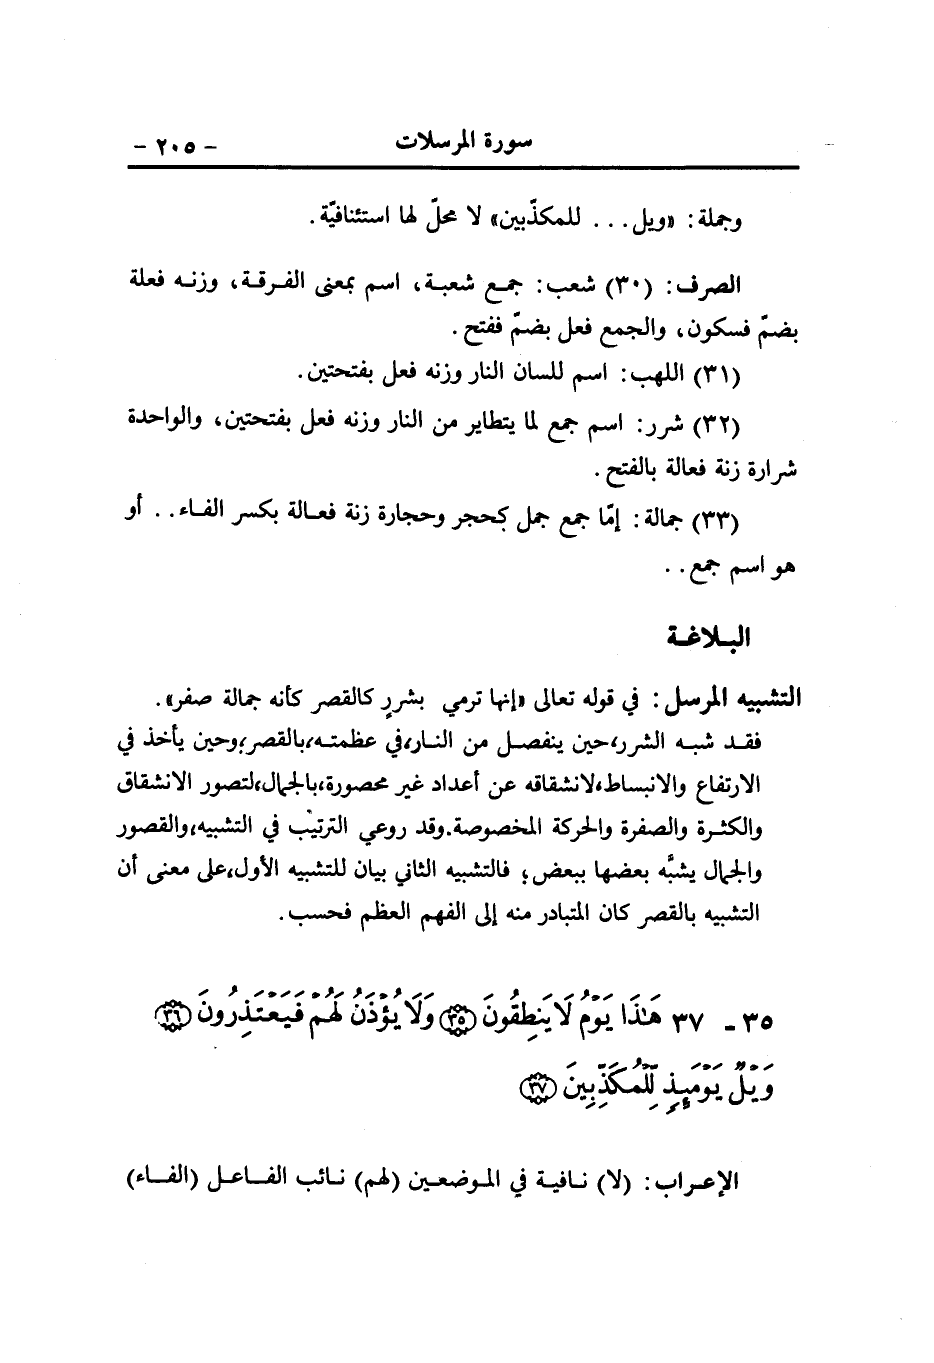 سورة المرسلات - ٢٠٥ -
وجملة: «ويل... للمكذّبين» لا محلّ لها استئنافيّة.
الصرف: (٣٠) شعب: جمع شعبة، اسم بمعنى الفرقة، وزنه فعلة
بضمّ فسكون، والجمع فعل بضمّ ففتح.
(٣١) اللهب: اسم للسان النار وزنه فعل بفتحتين.
(٣٢) شرر: اسم جمع لما يتطاير من النار وزنه فعل بفتحتين، والواحدة
شرارة زنة فعالة بالفتح.
(٣٣) جمالة: إمّا جمع جمل كحجر وحجارة زنة فعالة بكسر الفاء.. أو
هو اسم جمع..
البلاغة
التشبيه المرسل: في قوله تعالى «إنها ترمي بشررٍ كالقصر كأنه جمالة صفر».
فقد شبه الشرر،حين ينفصل من النار،في عظمته،بالقصر،وحين يأخذ في
الارتفاع والانبساط،لانشقاقه عن أعداد غير محصورة،بالجمال،لتصور الانشقاق
والكثرة والصفرة والحركة المخصوصة.وقد روعي الترتيب في التشبيه،والقصور
والجمال يشبَّه بعضها ببعض؛ فالتشبيه الثاني بيان للتشبيه الأول،على معنى أن
التشبيه بالقصر كان المتبادر منه إلى الفهم العظم فحسب.
٣٥ - ٣٧ هَٰذَا يَوْمُ لَا يَنطِقُونَ ٣٥ وَلَا يُؤْذَنُ لَهُمْ فَيَعْتَذِرُونَ ٣٦
وَيْلٌ يَوْمَئِذٍ لِّلْمُكَذِّبِينَ ٣٧
الإعراب: (لا) نافية في الموضعين (لهم) نائب الفاعل (الفاء)